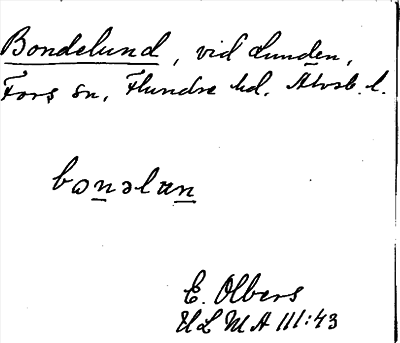 Bondelund, vid Lunden,
Fors sn, Flundre hd. Älvsb. l.
bωnəlun
E. Olbers
ULMA 111:43